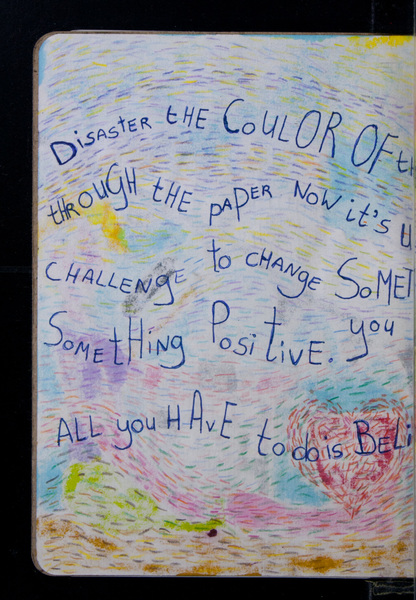 DiSASTER tHE CoULOR OF
tHROUGH tHE PAPER NOW it's
CHALLENGE to CHANGE
SOMEtHing PositivE. you
ALL you HAvE to do is